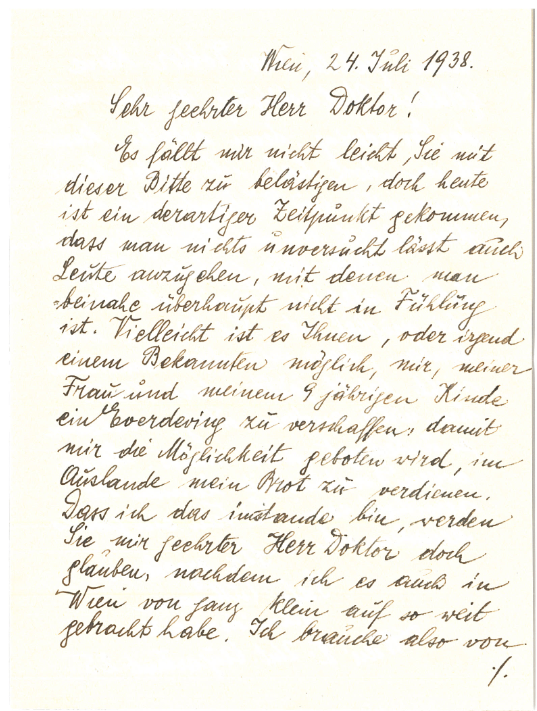 Wien, 24. Juli 1938.
Sehr geehrter Herr Doktor!
Es fällt mir nicht leicht, Sie mit
dieser Bitte zu belästigen, doch heute
ist ein derartiger Zeitpunkt gekommen,
dass man nichts unversucht lässt auch
Leute anzugehen, mit denen man
beinahe überhaupt nicht in Fühlung
ist. Vielleicht ist es Ihnen, oder irgend
einem Bekannten möglich, mir, meiner
Frau und meinem 9 jährigen Kinde
ein zu verschaffen, damit
mir die Möglichkeit geboten wird, im
Auslande mein Brot zu verdienen.
Dass ich das imstande bin, werden
Sie mir geehrter Herr Doktor doch
glauben, nachdem ich es auch in
Wien von ganz klein auf so weit
gebracht habe. Ich brauche also von
./.